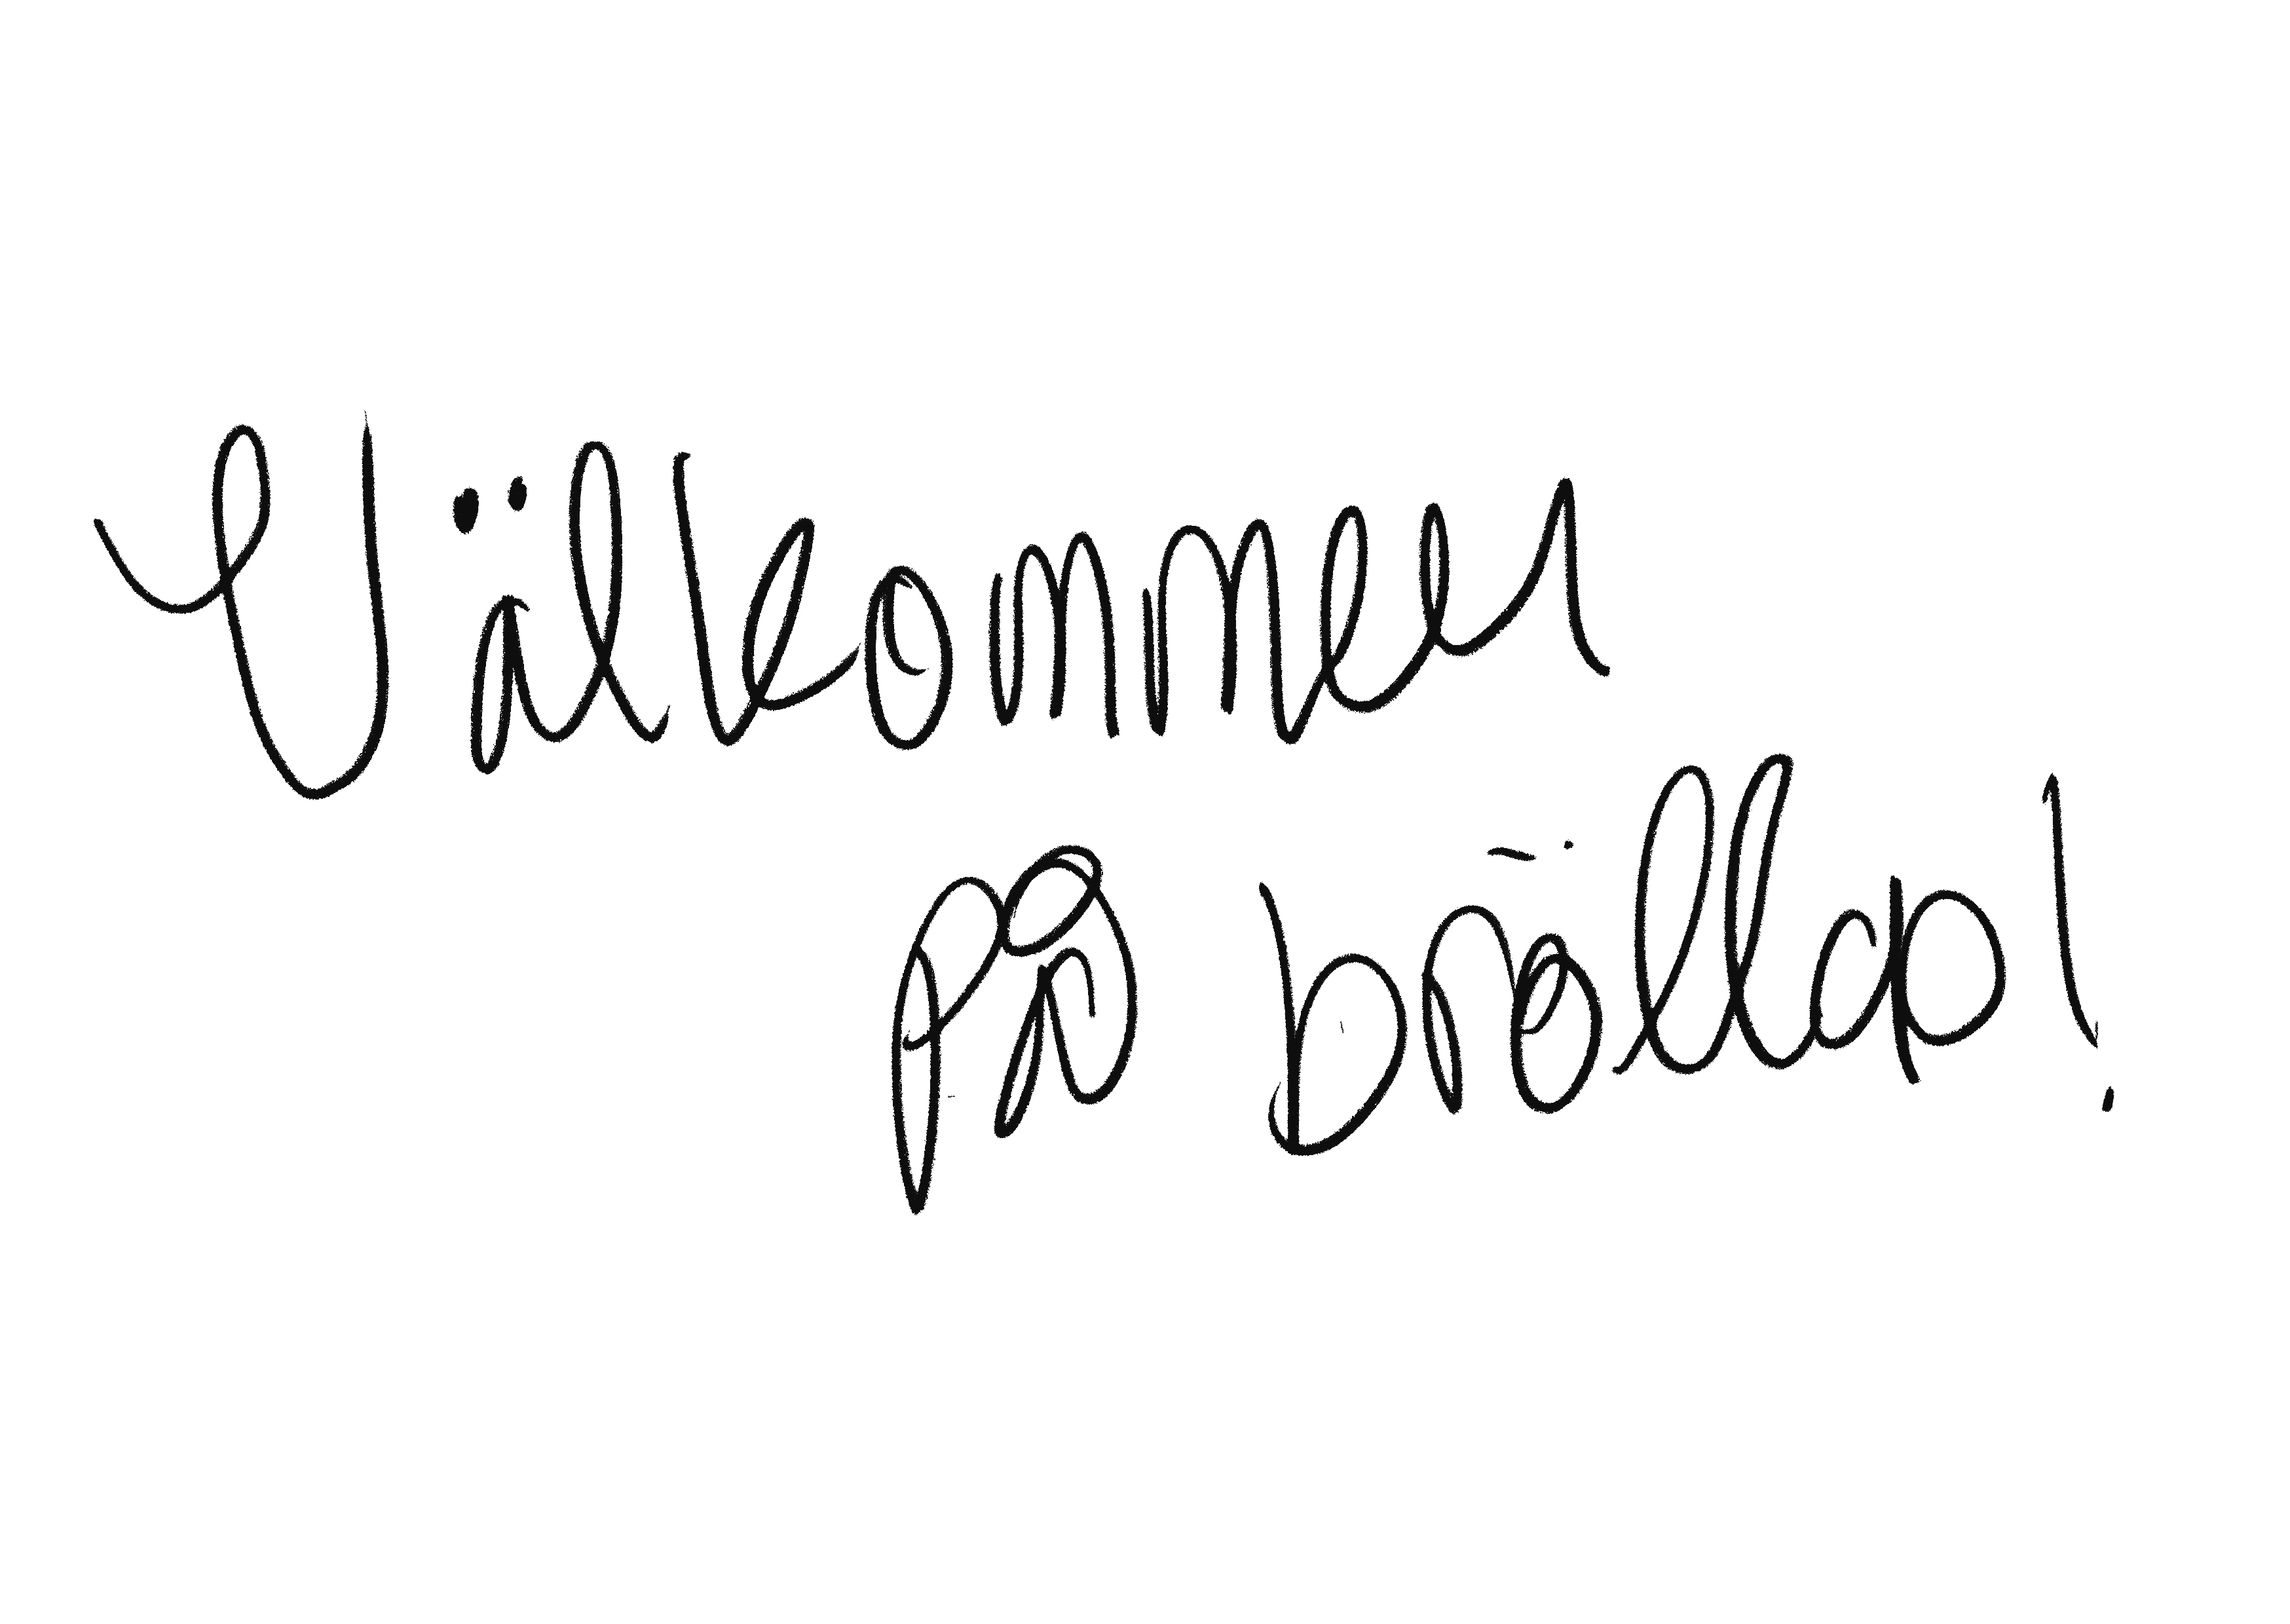 Välkommen
på bröllop!